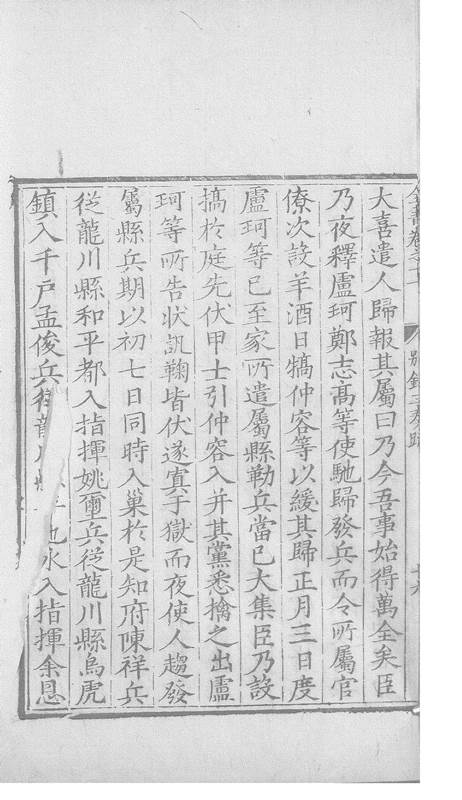 大喜遣人歸報其屬曰乃今吾事始得萬全矣臣
乃夜釋盧珂鄭志高等使馳歸發兵而令所屬官
僚次設羊酒日犒仲容等以緩其歸正月三日度
盧珂等已至家所遣屬縣勒兵當已大集臣乃設
犒於庭先伏甲士引仲容入并其黨悉擒之出盧
珂等所告狀訊鞠皆伏遂寘于獄而夜使人趨發
屬縣兵期以初七日同時入巢於是知府陳祥兵
從龍川縣和平都入指揮姚璽兵從龍川縣烏虎
鎮入千戶孟俊兵從龍川縣平地水入指揮余恩